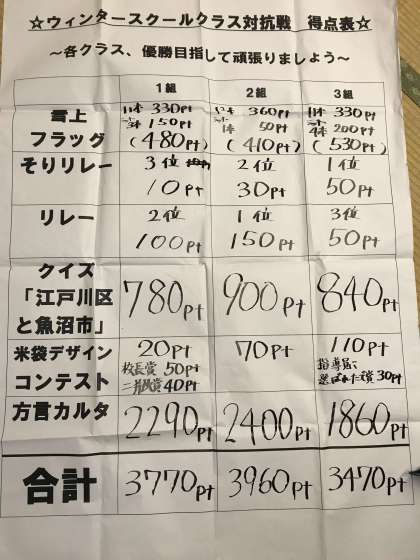 ☆ウィンタースクールクラス対抗戦 得点表☆
～各クラス、優勝目指して頑張りましょう～
1組 2組 3組
雪上フラッグ
330pt 150pt (480pt)
360pt 50pt (410pt)
330pt 200pt (530pt)
そりリレー
3位 10pt
2位 30pt
1位 50pt
リレー
2位 100pt
1位 150pt
3位 50pt
クイズ
「江戸川区
と魚沼市」
780pt 900pt 840pt
米袋デザイン
コンテスト
20pt
校長賞 50pt
40pt
70pt
110pt
選ばれた賞 30pt
方言カルタ 2290pt 2400pt 1860pt
合計 3770pt 3960pt 3470pt